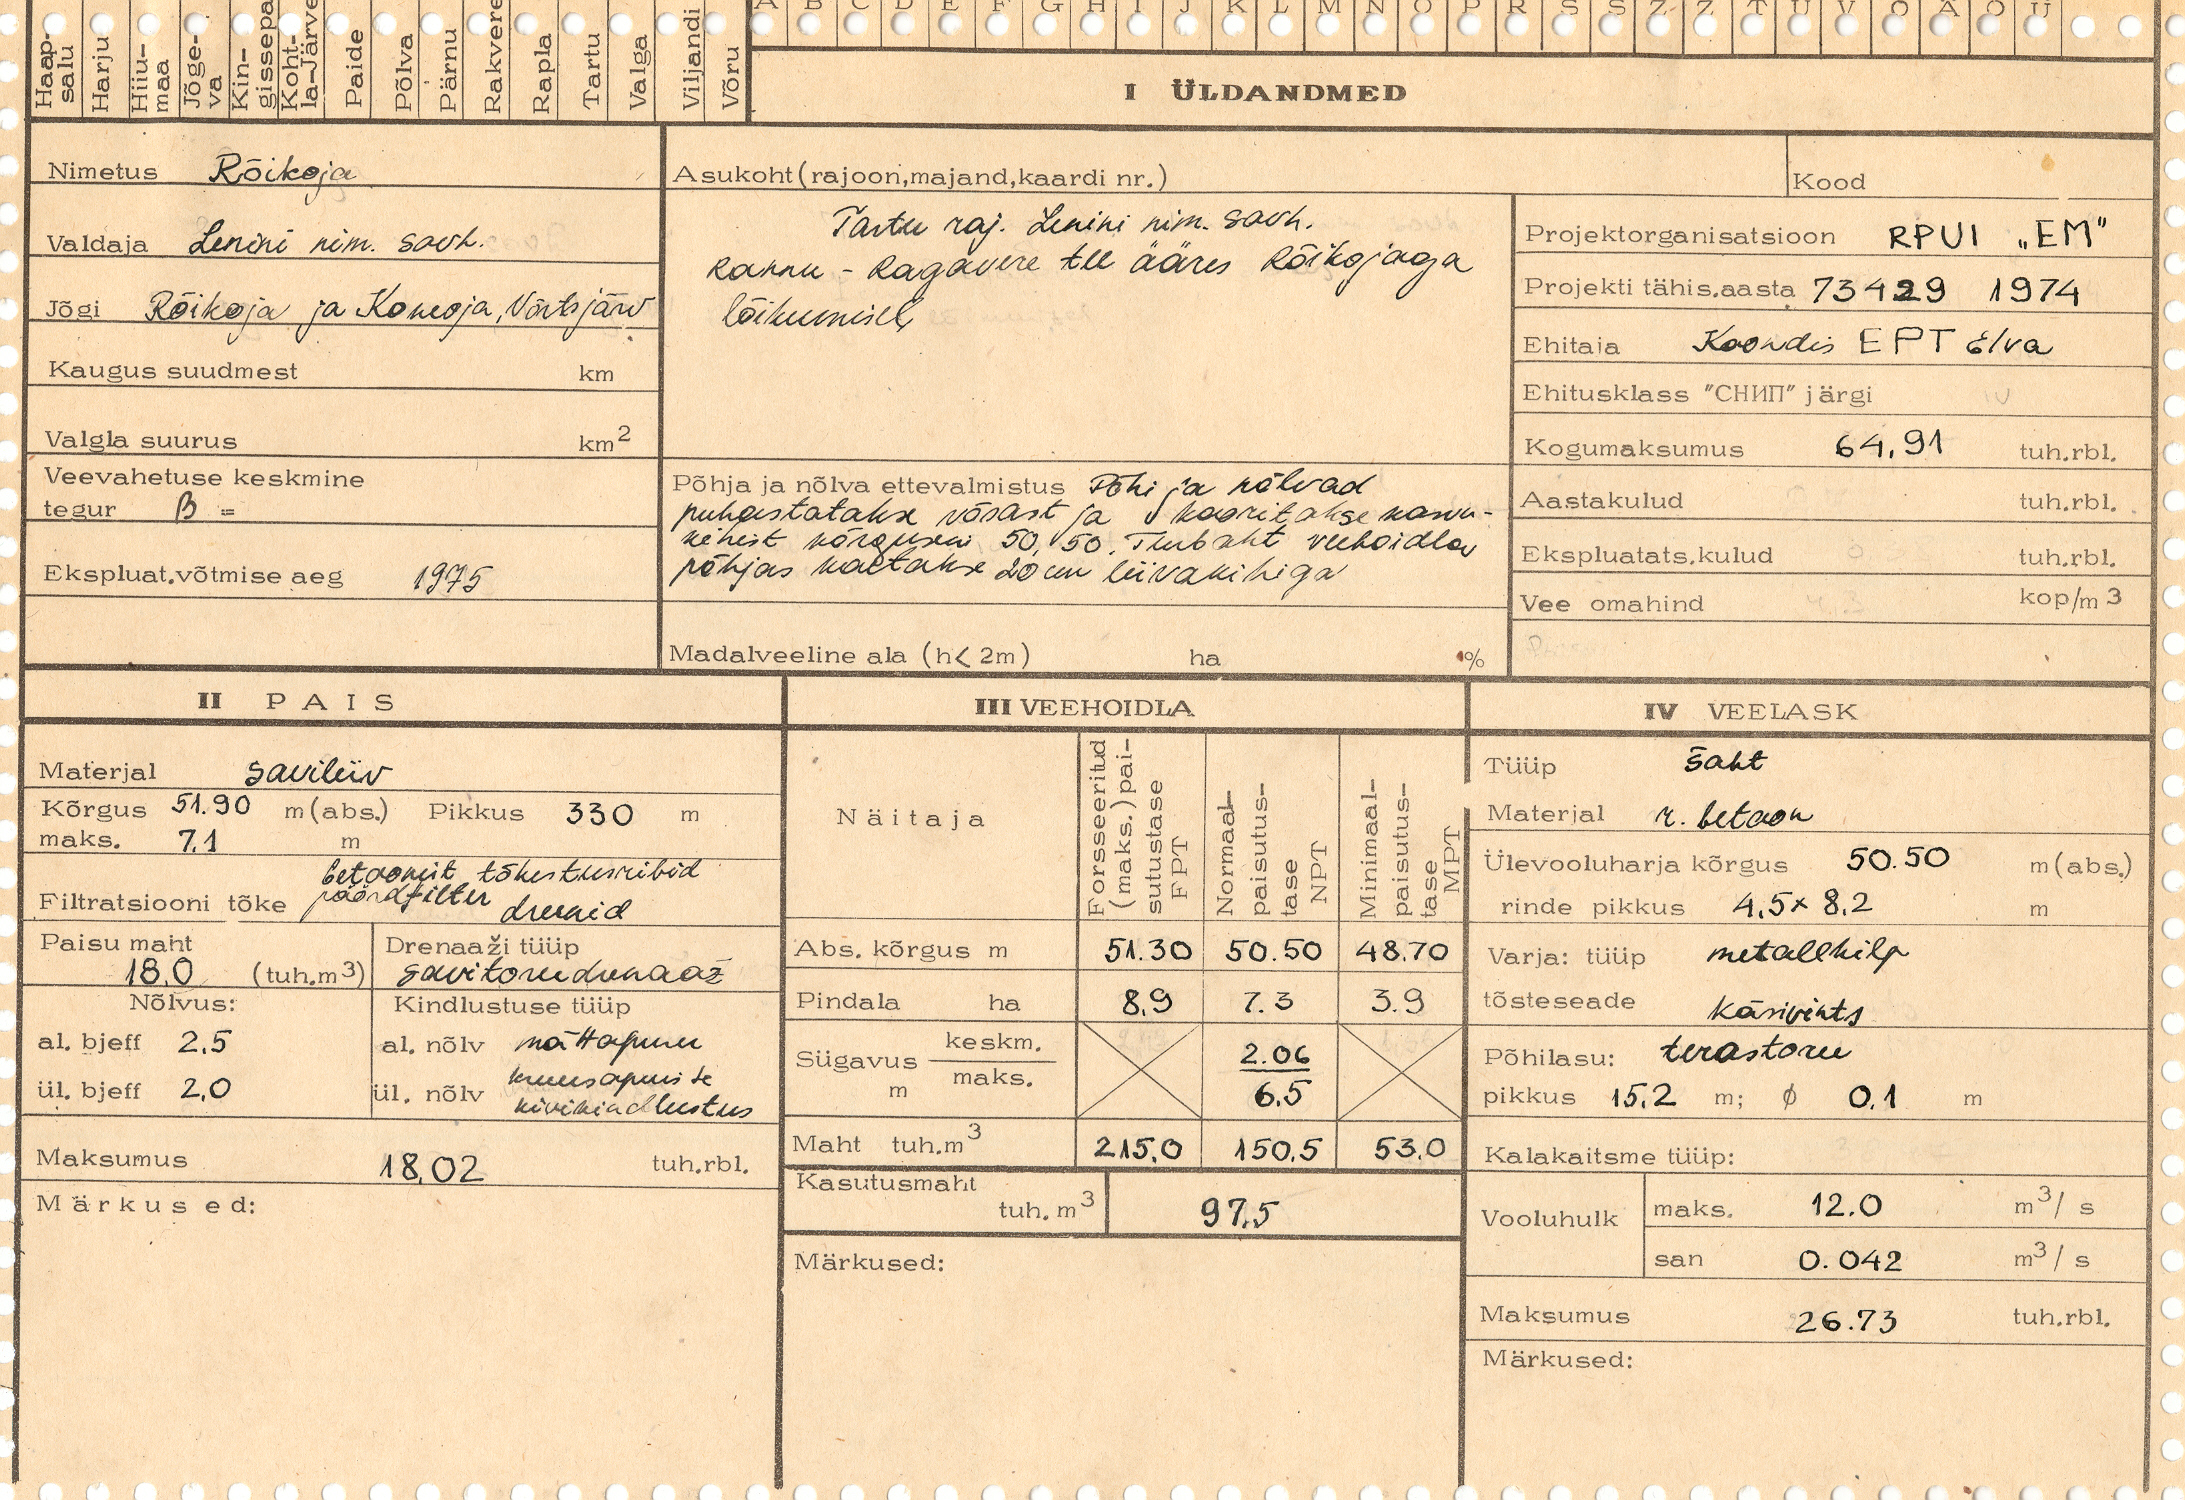 A B C D E F G H I J K L M N O P R S Š Z Ž T U V Õ Ä Ö Ü
Haap-
salu
Harju
Hiiu-
maa
Jõge-
va
Kin-
gissepa
Koht-
la-Järve
Paide
Põlva
Pärnu
Rakvere
Rapla
Tartu
Valga
Viljandi
Võru
I ÜLDANDMED
Nimetus Rõikoja
Valdaja Lenini nim. sovh.
Jõgi Rõikoja ja Koneoja, Võrtsjärv
Kaugus suudmest km
Valgla suurus km2
Veevahetuse keskmine
tegur β =
Ekspluat.võtmise aeg 1975
Asukoht(rajoon,majand,kaardi nr.)
Tartu raj. Lenini nim. sovh.
Rannu - Ragavere tee ääres Rõikojaga
lõikumisel
Põhja ja nõlva ettevalmistus Põhi ja nõlvad
puhastatakse võsast ja kooritakse kasvu-
kihist kõrguseni 50,50. Turbaht veehoidla
põhjas kaetakse 20 cm liivakihiga
Madalveeline ala (h< 2m) ha %
Kood
Projektorganisatsioon RPUI „EM"
Projekti tähis.aasta 73429 1974
Ehitaja Koondis EPT Elva
Ehitusklass "СНИП" järgi IV
Kogumaksumus 64,91 tuh.rbl.
Aastakulud tuh.rbl.
Ekspluatats.kulud tuh.rbl.
Vee omahind kop/m3
II PAIS
Materjal saviliiv
Kõrgus 51.90 m(abs.) Pikkus 330 m
maks. 7.1 m
betoonist tõkestusribid
Filtratsiooni tõke pöördfilter
dreenid
Paisu maht
18.0 (tuh.m3)
Drenaaži tüüp
savitorudrenaaž
Nõlvus:
al. bjeff 2,5
ül. bjeff 2,0
Kindlustuse tüüp
al. nõlv mättapuru
ül. nõlv kruusapuiste
kivikindlustus
Maksumus 18,02 tuh.rbl.
Märkused:
III VEEHOIDLA
Näitaja
Forsseeritud
(maks.) pai-
sutustase
FPT
Normaal-
paisutus-
tase
NPT
Minimaal-
paisutus-
tase
MPT
Abs. kõrgus m 51.30 50.50 48.70
Pindala ha 8,9 7.3 3.9
Sügavus m keskm. 2.06
maks. 6.5
Maht tuh.m3 215,0 150,5 53.0
Kasutusmaht
tuh.m3 97,5
Märkused:
IV VEELASK
Tüüp šaht
Materjal r. betoon
Ülevooluharja kõrgus 50.50 m(abs.)
rinde pikkus 4,5 x 8,2 m
Varja: tüüp metallkilp
tõsteseade käsivints
Põhilasu: terastoru
pikkus 15,2 m; ϕ 0,1 m
Kalakaitsme tüüp:
Vooluhulk maks. 12.0 m3/ s
san 0.042 m3/ s
Maksumus 26.73 tuh.rbl.
Märkused: